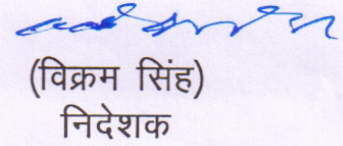 (विक्रम सिंह)
निदेशक